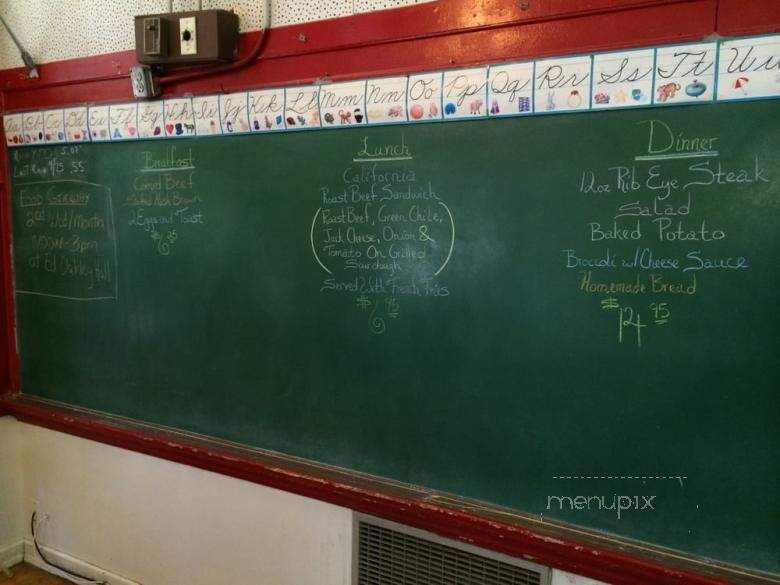 Aa Bb Cc Dd Ee Ff Gg Hh Ii Jj Kk Ll Mm Nn Oo Pp Qq Rr Ss Tt Uu
5.02"
Last Rain 9/25 .55
Food Giveaway
2nd Wed/Month
Noon-3pm
at Ed Oakley Hall
Breakfast
Corned Beef
Hash Brown
2 Eggs and Toast
Lunch
California
Roast Beef Sandwich
(Roast Beef, Green Chile,
Jack Cheese, Onion &
Tomato On Grilled
Sourdough)
Served With French Fries
$6.95
Dinner
12oz Rib Eye Steak
Salad
Baked Potato
Broccoli w/Cheese Sauce
Homemade Bread
$14.95
menupix